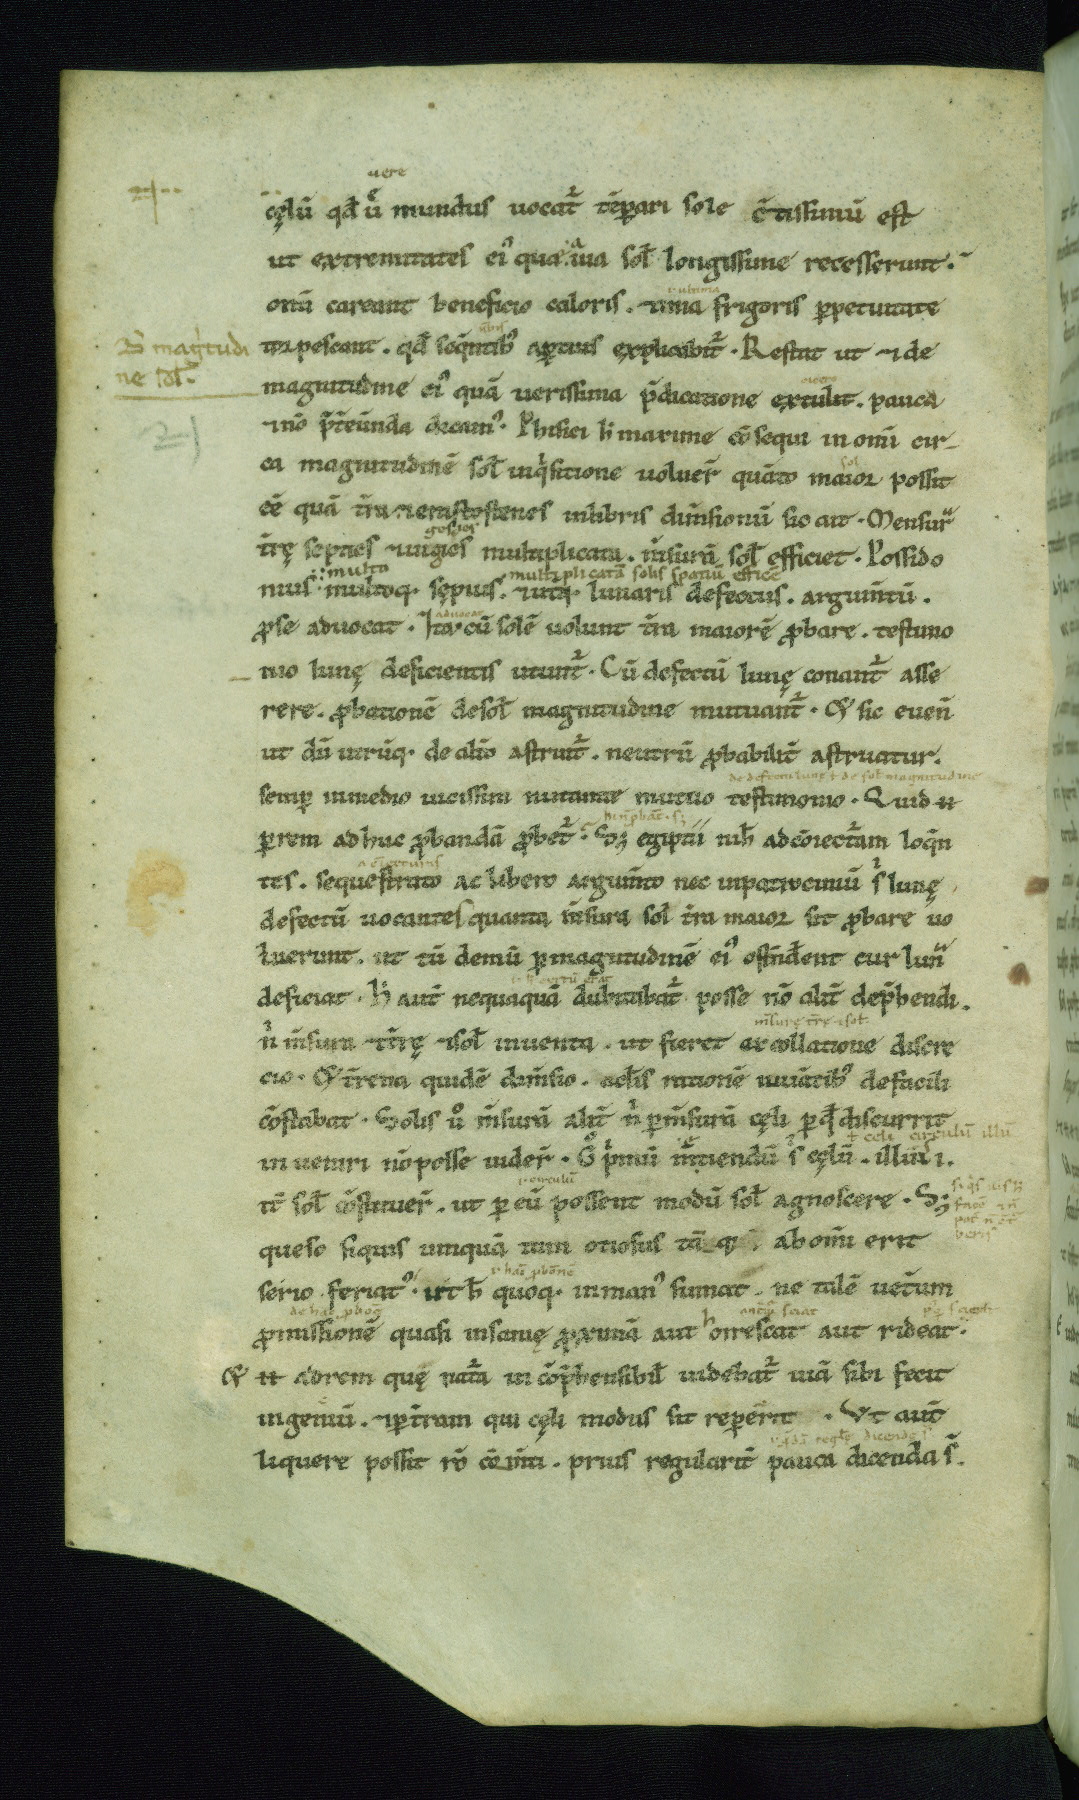 uere
cęlū qđ ů mundus uocat᷑ tēꝑari sole c̄tissimū est
ut extremitates ei᷒ que a uia sol̄ longissime recesserunt.
omī careant beneficio caloris. ⁊una frigoris ꝑpetuitate
torpescant. qđ seq̄ntib᷒ aꝑtius explicabit᷑. Restat ut ⁊ de
D̄ magᷓitudi
ne sol̄.
magnitudine ei᷒ quā uerissima p̄dicatione extulit. pauca
⁊nō p̄tereūnda dicam᷒. Phisici h̄ maxime cōsequi in omī cir
ca magnitudinē sol̄ inqͥsitione voluer̄ quāto maior possit
eē quā t̄ra. ⁊ erastostenes in libris dim̄sionū sic ait. Mensur̄
t̄rę septies ⁊uigies multiplicata. m̄surā sol̄ efficiet. Possido
multiplicatā solis spatiū efficē
nius multo multoq; sępius. ⁊utq; lunaris defectus. argum̄tū.
ꝓ se aduocat. Ita cū solē uolunt t̄ra maiorē ꝓbare. testimo
nio lunę deficientis utunt᷑. Cū defectū lunę conant᷑ asse
rere. ꝓbationē de sol̄ magnitudine mutuant᷑. Et sic euen̄
ut dū utrūq; de alīo astruit᷑. neutrū ꝓbabilit̄ astruatur.
de defectu lunę ł de sol̄ magnitudine
semꝑ in medio uicissim nutante mutuo testimonio. Quid n̄
ꝑ rem adhuc ꝓbandā ꝓbet᷑. Sꝫ egiptii nih̄ ad cōiect᷑am loq̄n
tes. sequestrato ac libero argum̄to nec in patrociniū sͥ lunę
defectū uocantes quanta m̄sura sol̄ t̄ra maior sit ꝓbare uo
luerunt. ut tū demū ꝑ magnitudinē ei᷒ ostn̄derent cur lun̄
deficiat. H̄ aut̄ nequaquā dubitabat᷑ posse nō alit̄ dep̄hendi.
m̄surę t̄rę ⁊ sol̄
nͥ m̄sura ⁊t̄rę ⁊sol̄ inuenta. ut fieret ex collatione discre
cio. Et t̄rena quidē dim̄sio. ocl̄is rationē iuuātib᷒ de facili
cōstabat. Solis ů m̄surā alit̄ nͥ ꝑ m̄surā cęli ꝑ qđ discurrit
ł celi circulū illū
in ueniri nō posse uider̄. G̊ pͥmū m̄tiendū sͥ cęlū. illū .i.
ł circulū
t̄t sol̄ cōstituer̄. ut ꝑ eū possent modū sol̄ agnoscere. Sꝫ
queso siquis umquā tam otiosus tā ab omī erit
serio feriat᷒. ut h̄ quoq; in man᷒ sumat. ne talē uet̄um
ꝓmissionē quasi insanię ꝓximā aut horrescat aut rideat.
Et n̄ ad rem quę nat᷑a in cōp̄hensibil̄ uidebat᷑ uiā sibi fecit
ingeniū. ⁊ꝑ t̄ram qui cęli modus sit reperit. Ut aut̄
liquere possit rō cōm̄ti. prius regularit̄ pauca dicenda s̄.